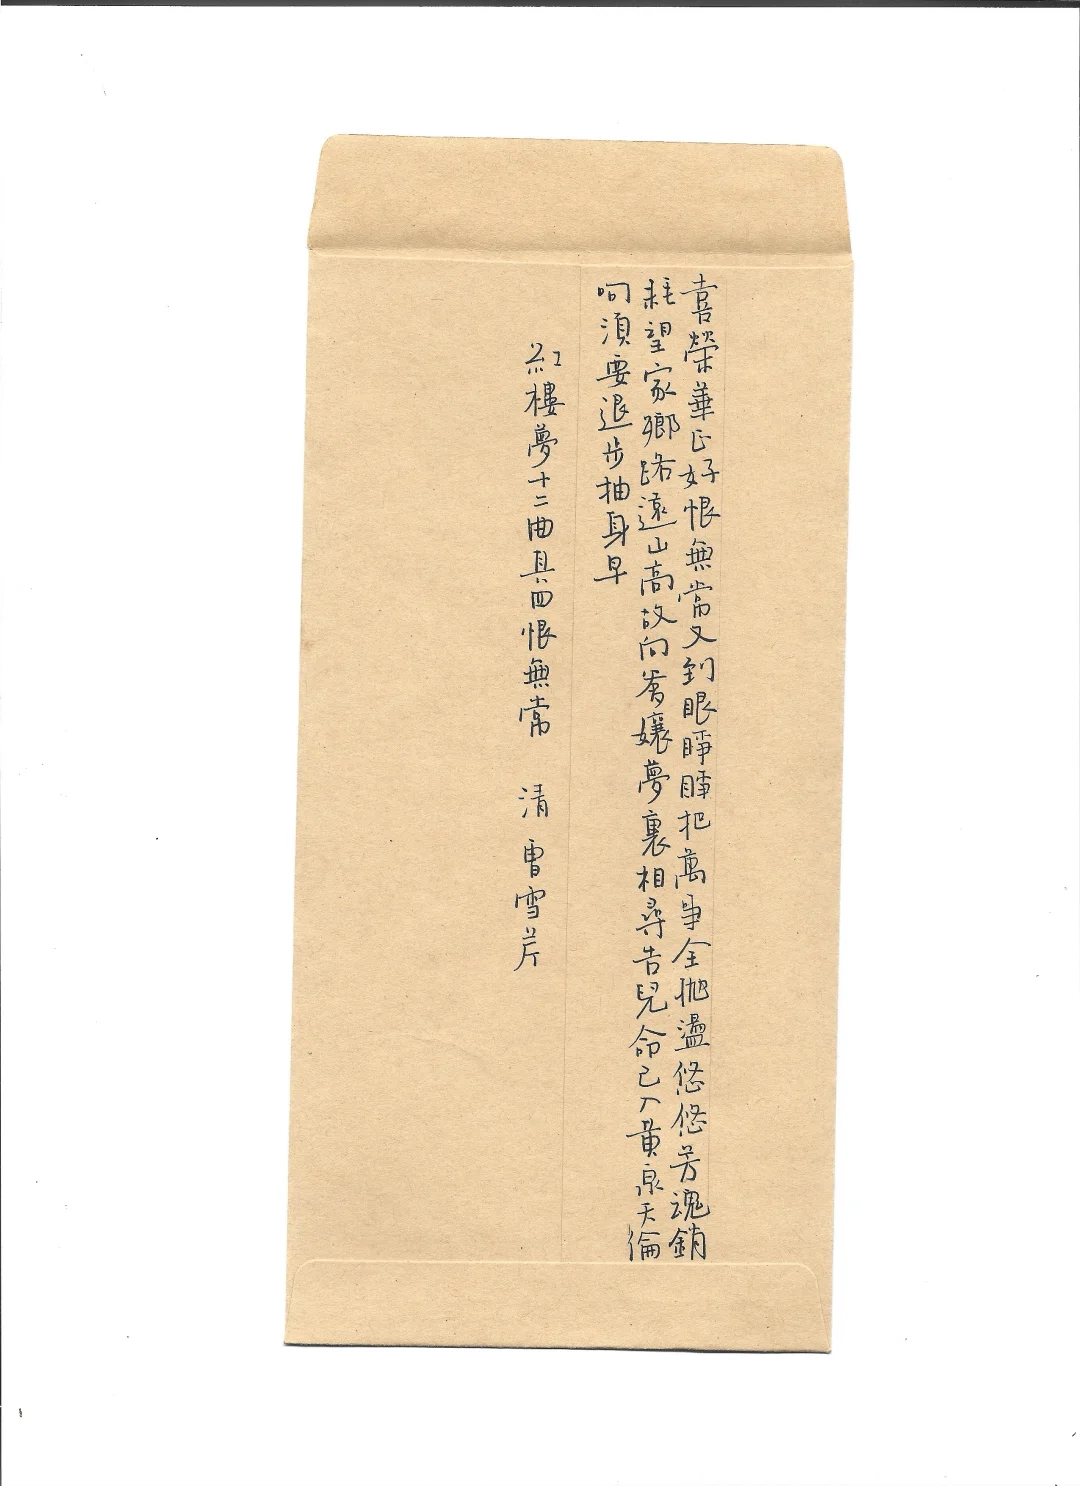 喜榮華正好恨無常又到眼睜睜把萬事全拋盪悠悠芳魂銷
耗望家鄉路遠山高故向爹孃夢裏相尋告兒命已入黃泉天倫
呵須要退步抽身早
紅樓夢十二曲其四恨無常　清　曹雪芹